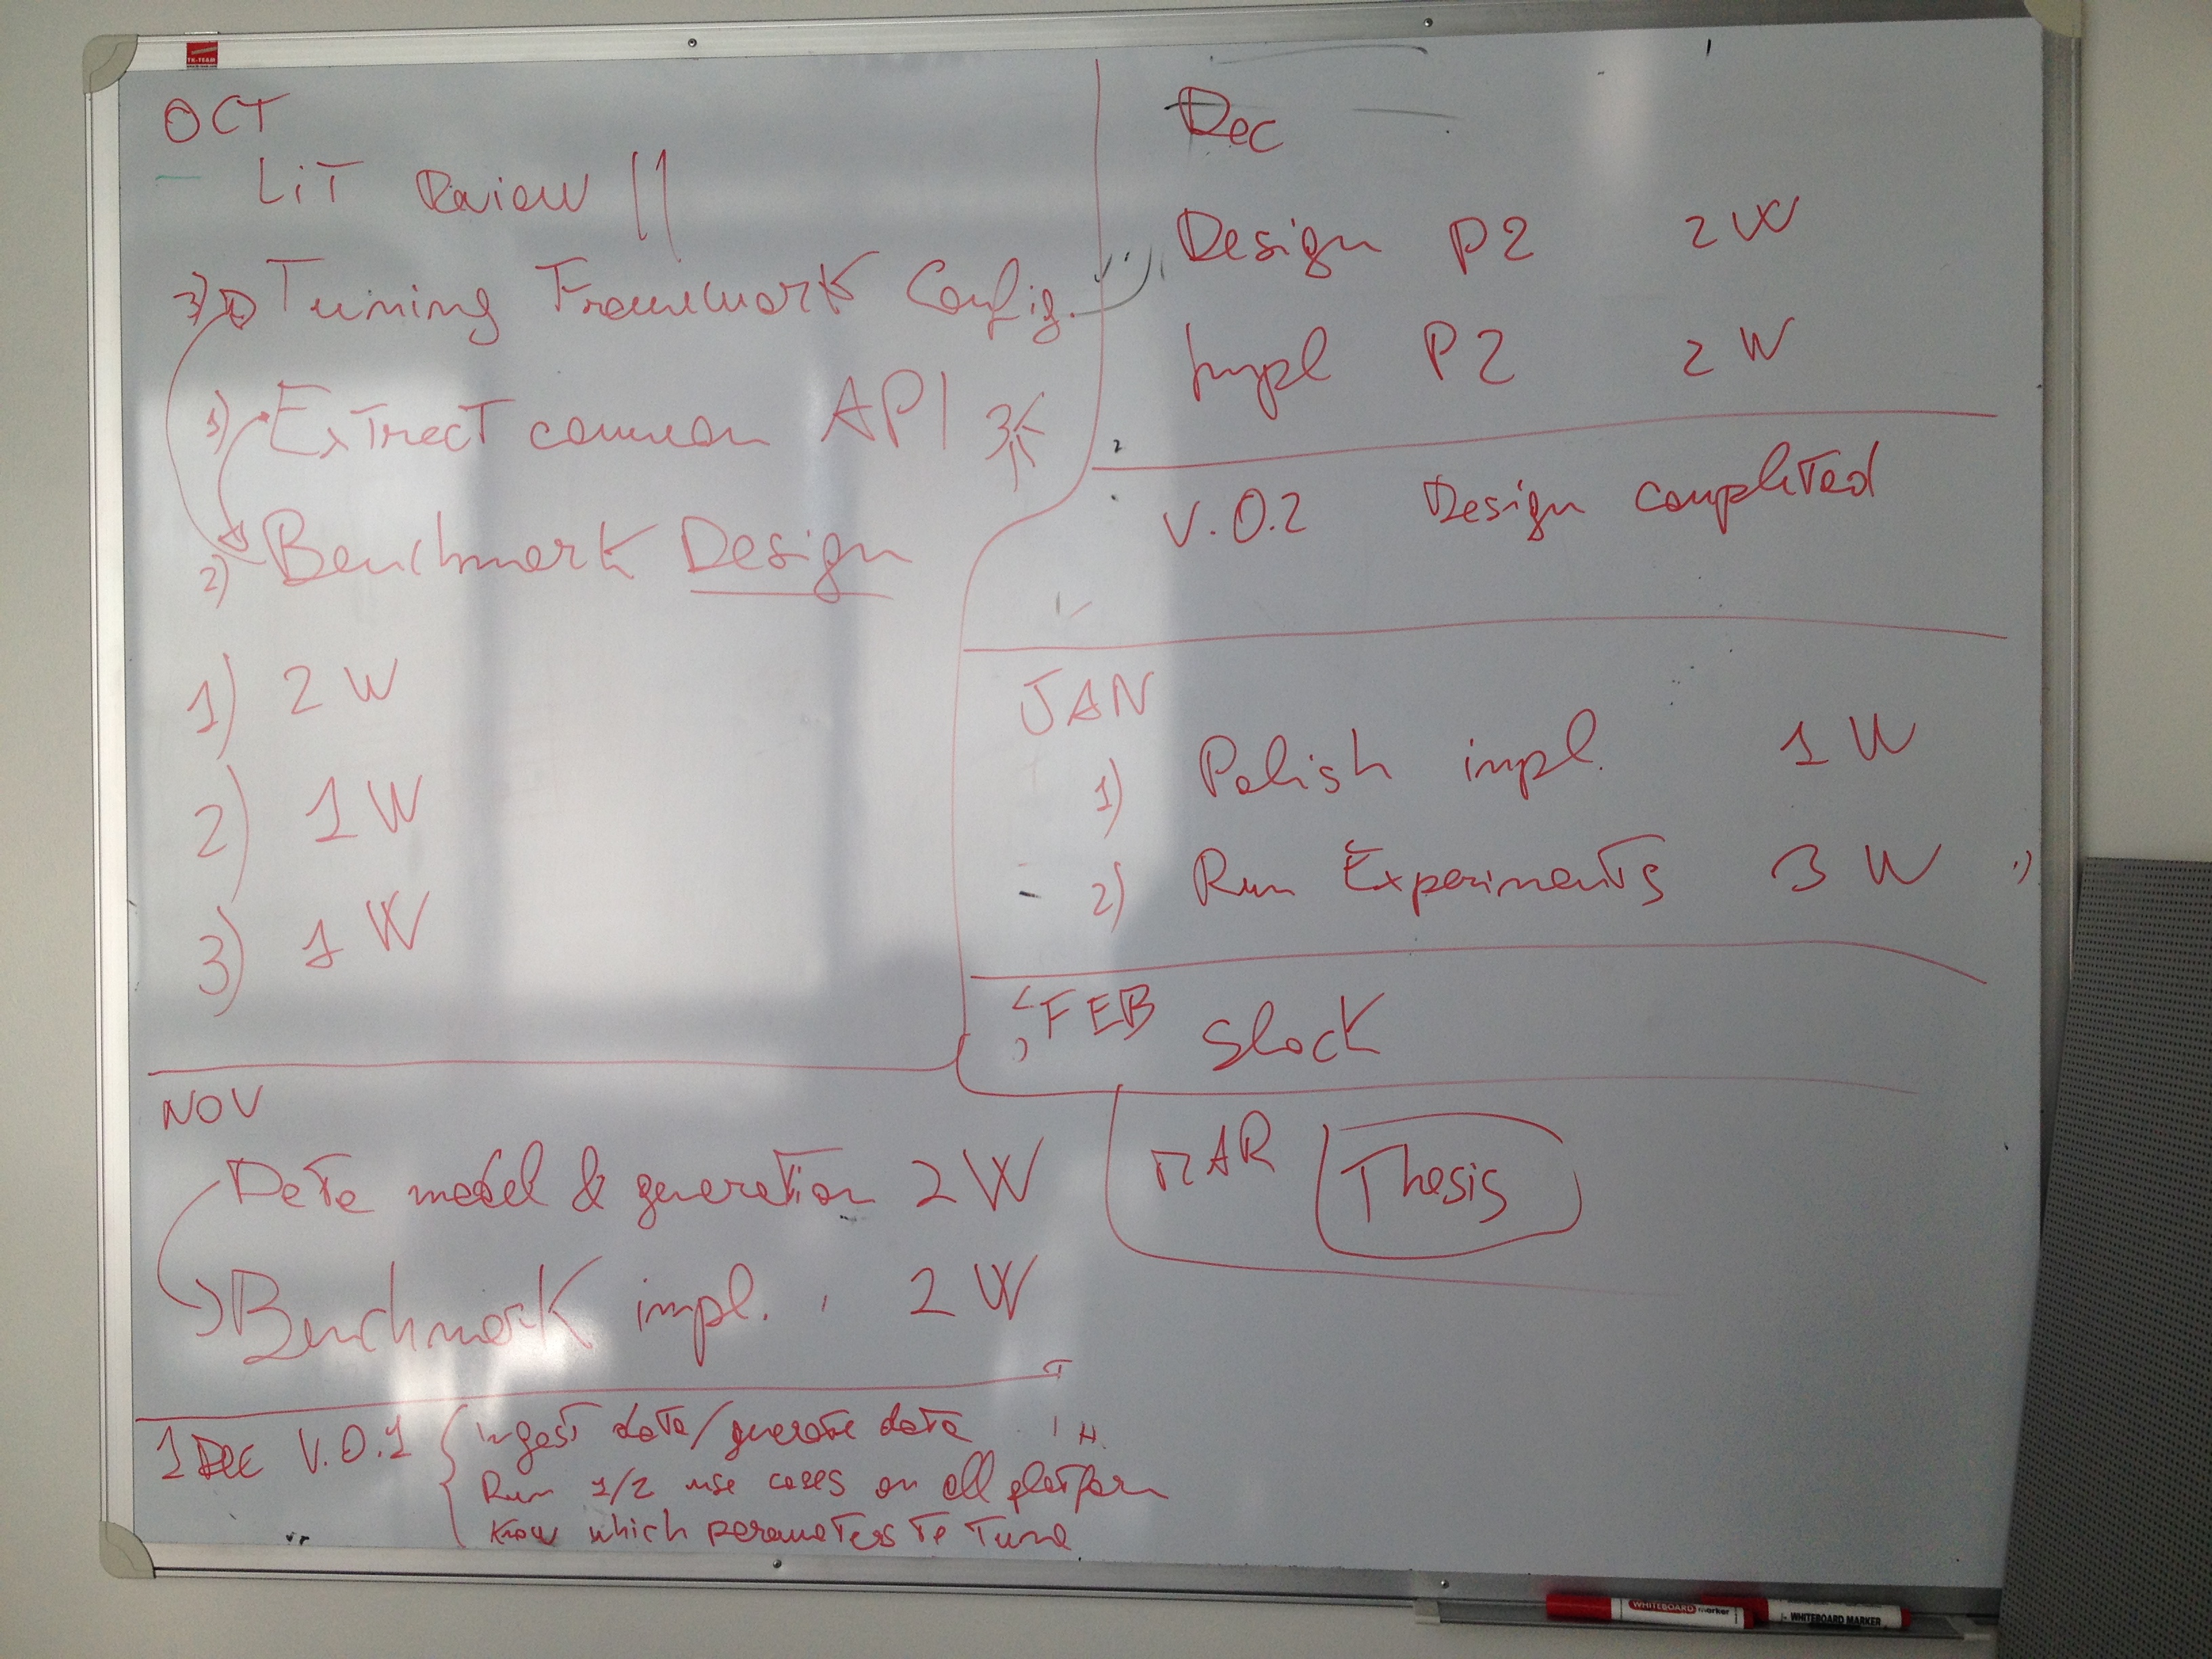 OCT
LiT Review !!
3) Tuning Framework Config.
1) Extract common API
2) Benchmark Design
1) 2 W
2) 1 W
3) 1 W
NOV
Data model & generation 2 W
Benchmark impl. 2 W
1 Dec V.0.1 { Ingest data/generate data
Run 1/2 use cases on all platform
Know which parameters to Tune
Dec
Design P2 2 W
Impl P2 2 W
V.0.2 Design completed
JAN
1) Polish impl. 1 W
2) Run Experiments 3 W
FEB Slack
MAR Thesis
WHITEBOARD marker
WHITEBOARD MARKER